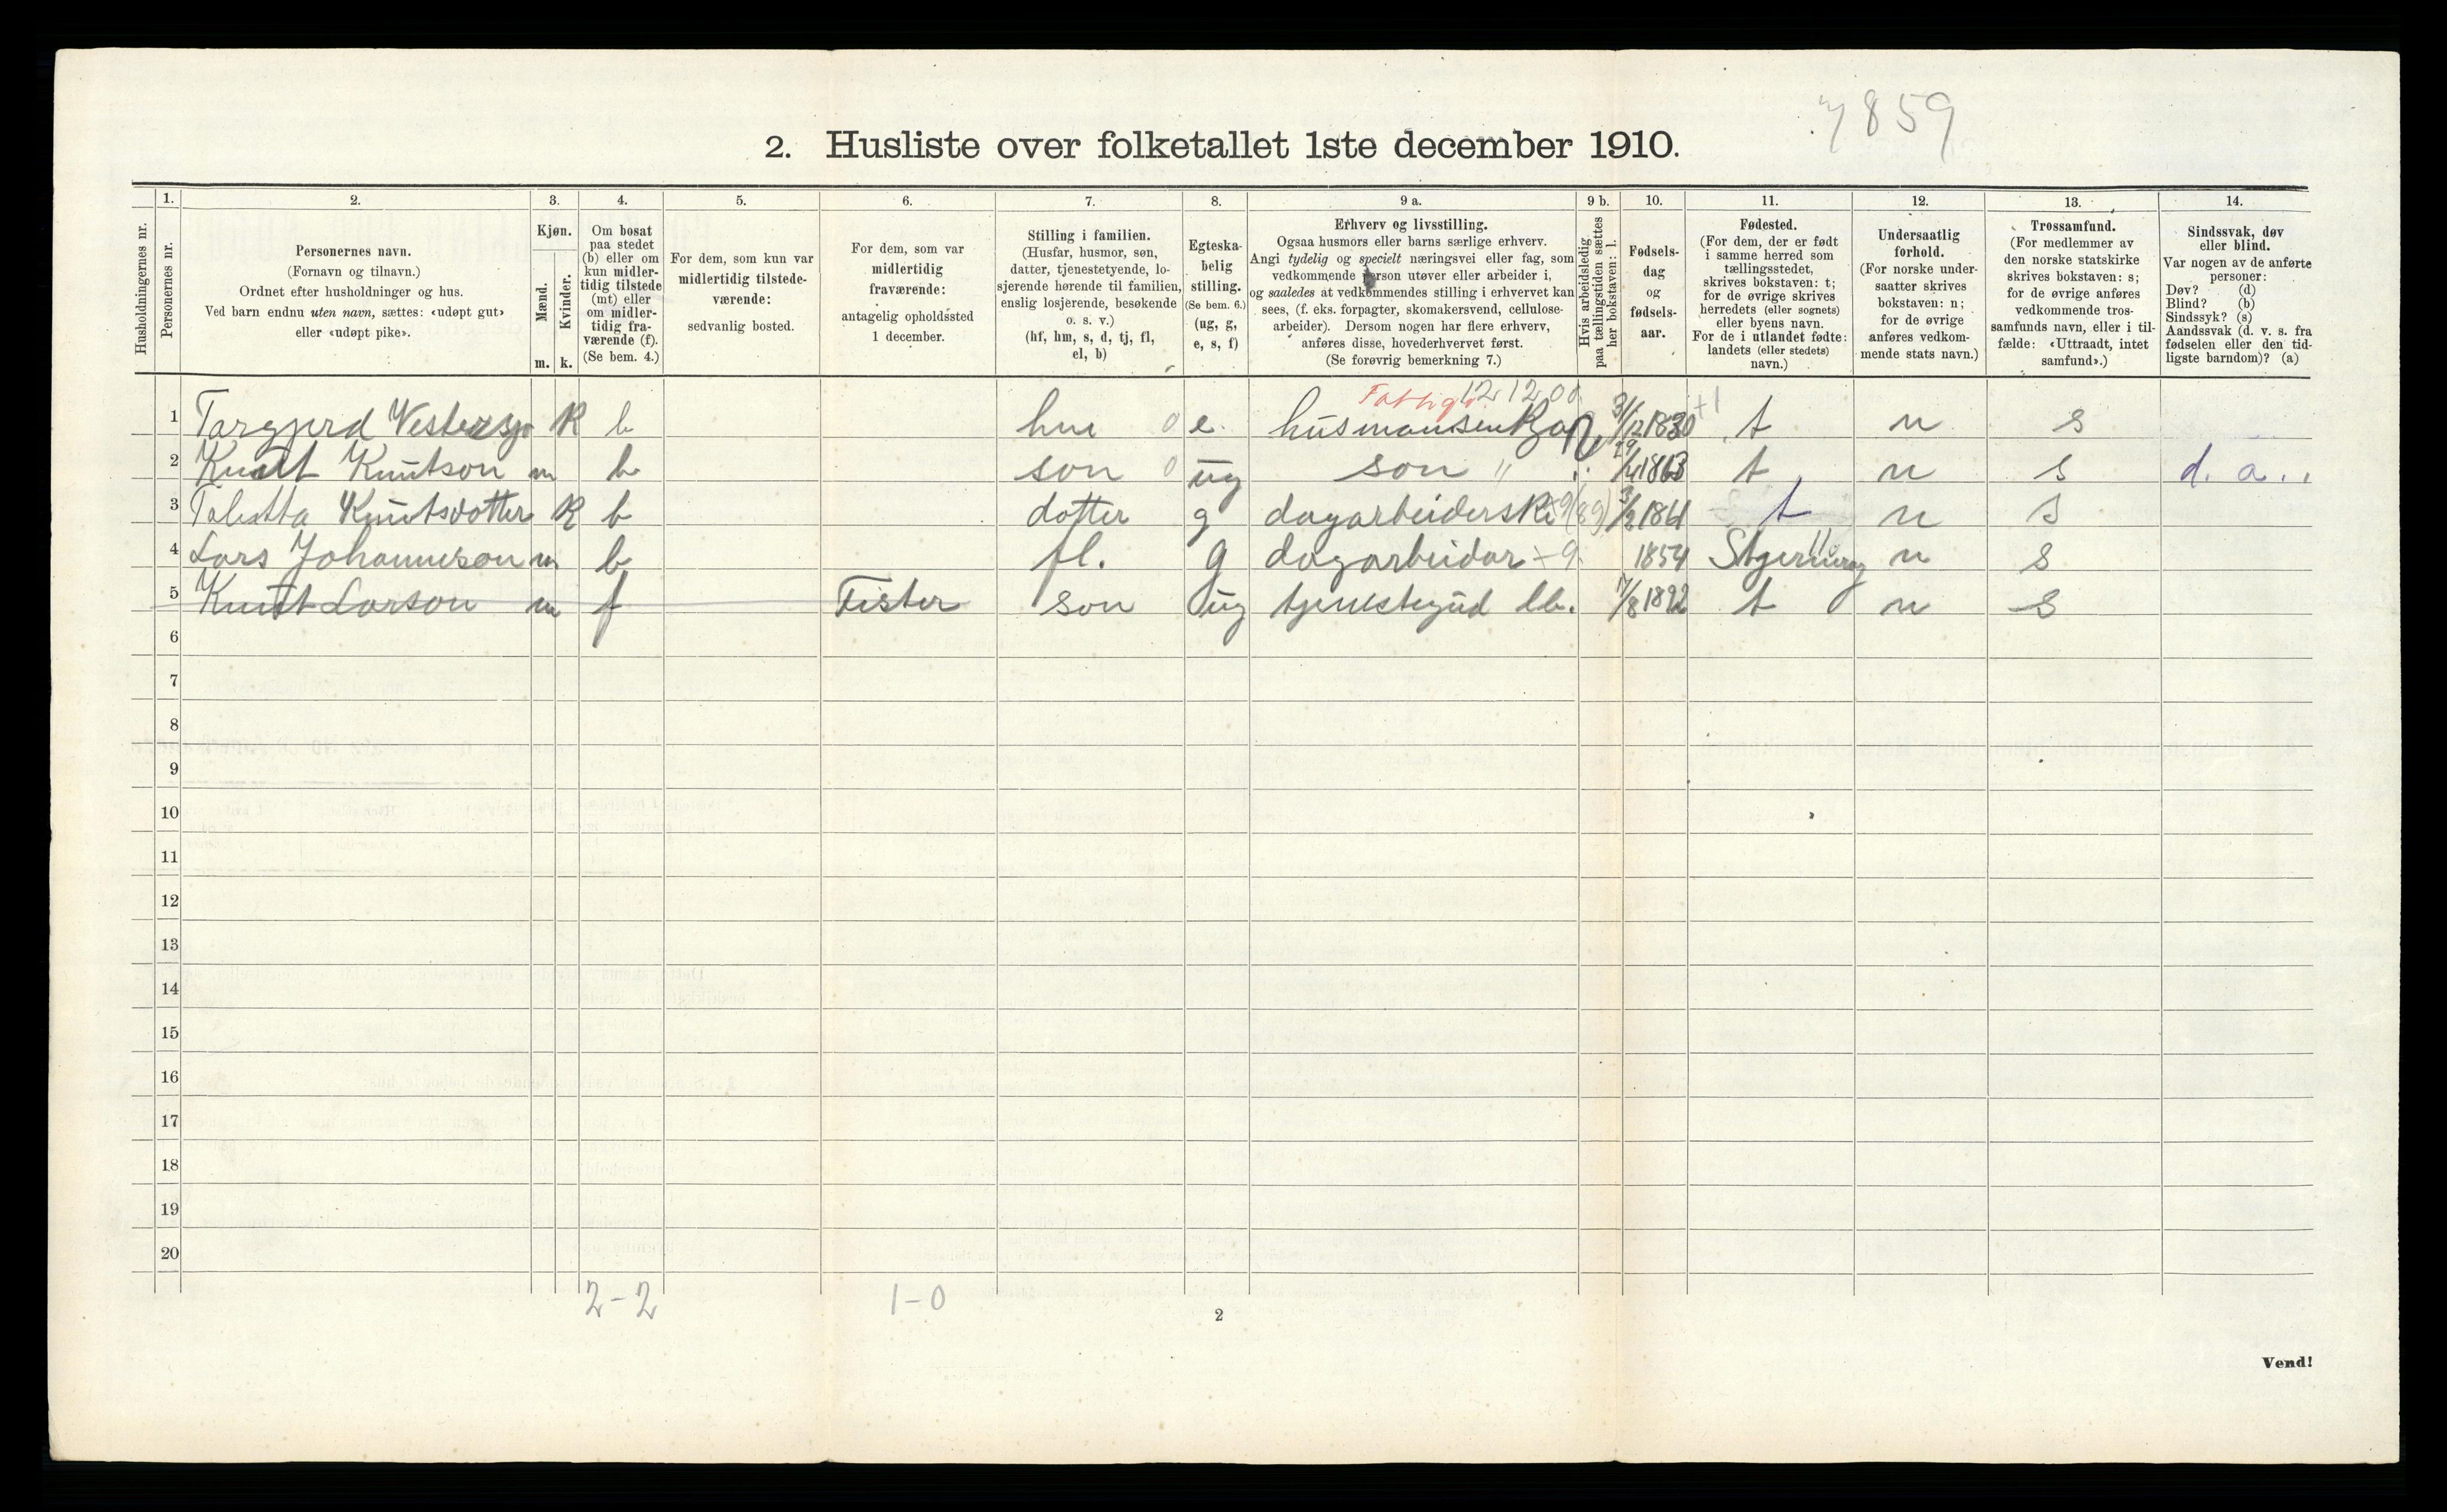 7859
2. Husliste over folketallet 1ste december 1910.
Husholdningernes nr.
1.
Personernes nr.
2.
Personernes navn.
(Fornavn og tilnavn.)
Ordnet efter husholdninger og hus.
Ved barn endnu uten navn, sættes: «udøpt gut»
eller «udøpt pike».
3.
Kjøn.
Mænd.
Kvinder.
m. k.
4.
Om bosat
paa stedet
(b) eller om
kun midler-
tidig tilstede
(mt) eller
om midler-
tidig fra-
værende (f).
(Se bem. 4.)
5.
For dem, som kun var
midlertidig tilstede-
værende:
sedvanlig bosted.
6.
For dem, som var
midlertidig
fraværende:
antagelig opholdssted
1 december.
7.
Stilling i familien.
(Husfar, husmor, søn,
datter, tjenestetyende, lo-
sjerende hørende til familien,
enslig losjerende, besøkende
o. s. v.)
(hf, hm, s, d, tj, fl,
el, b)
8.
Egteska-
belig
stilling.
(Se bem. 6.)
(ug, g,
e, s, f)
9 a.
Erhverv og livsstilling.
Ogsaa husmors eller barns særlige erhverv.
Angi tydelig og specielt næringsvei eller fag, som
vedkommende person utøver eller arbeider i,
og saaledes at vedkommendes stilling i erhvervet kan
sees, (f. eks. forpagter, skomakersvend, cellulose-
arbeider). Dersom nogen har flere erhverv,
anføres disse, hovederhvervet først.
(Se forøvrig bemerkning 7.)
9 b.
Hvis arbeidsledig
paa tællingstiden sættes
her bokstaven: l.
10.
Fødsels-
dag
og
fødsels-
aar.
11.
Fødested.
(For dem, der er født
i samme herred som
tællingsstedet,
skrives bokstaven: t;
for de øvrige skrives
herredets (eller sognets)
eller byens navn.
For de i utlandet fødte:
landets (eller stedets)
navn.)
12.
Undersaatlig
forhold.
(For norske under-
saatter skrives
bokstaven: n;
for de øvrige
anføres vedkom-
mende stats navn.)
13.
Trossamfund.
(For medlemmer av
den norske statskirke
skrives bokstaven: s;
for de øvrige anføres
vedkommende tros-
samfunds navn, eller i til-
fælde: «Uttraadt, intet
samfund».)
14.
Sindssvak, døv
eller blind.
Var nogen av de anførte
personer:
Døv? (d)
Blind? (b)
Sindssyk? (s)
Aandssvak (d. v. s. fra
fødselen eller den tid-
ligste barndom)? (a)
1 K b 0 e. 31/12 1830 t n s
2 Knut Knutson m b son 0 ug son " 1863 t n s d. a.
3 Knutsdotter K b dotter g dagarbeiderske 3/2 1861 t n s
4 Lars Johanneson m b fl. g dagarbeidar 1854 n s
5 Knut Larson m f Fister son ug lb. 17/8 1892 t n s
6
7
8
9
10
11
12
13
14
15
16
17
18
19
20
2-2 1-0
2
Vend!